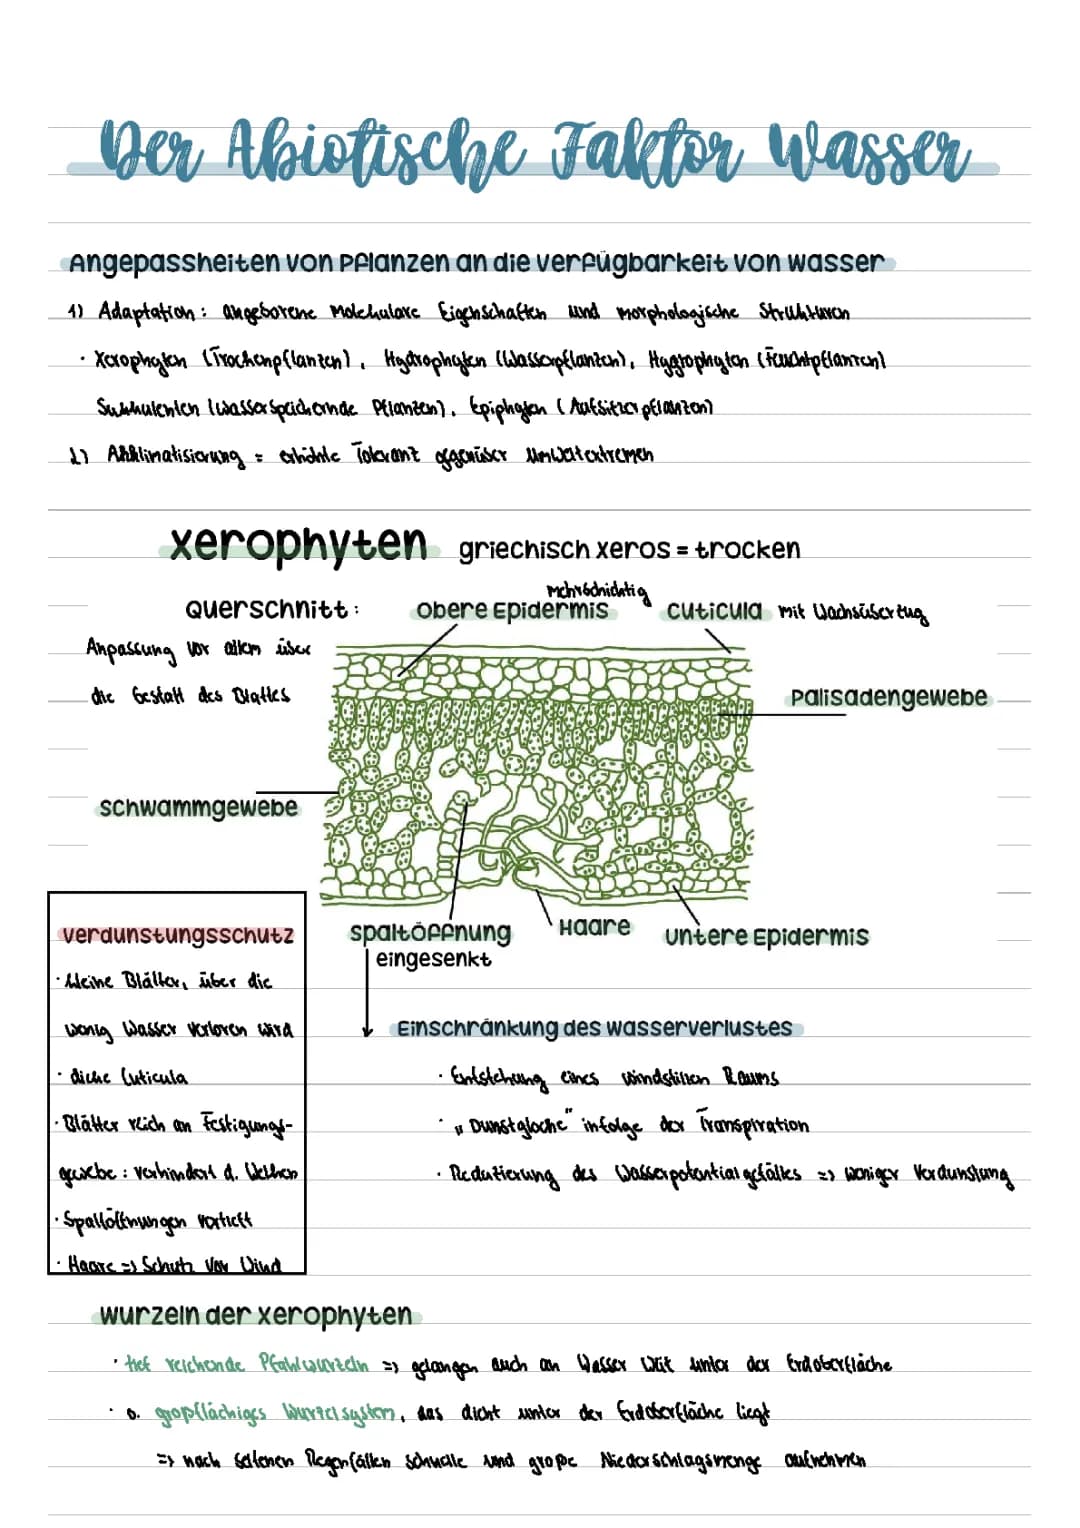 Der Abiotische Faktor Wasser
Angepassheiten von Pflanzen an die Verfügbarkeit von Wasser
1) Adaptation: angeborene Molekulare Eigenschaften und morphologische Strukturen
· Xerophyten (Trockenpflanzen), Hydrophyten (Wasserpflanzen), Hygrophyten (Feuchtpflanzen)
Sukkulenten (Wasserspeichernde Pflanzen), Epiphyten (Aufsitzerpflanzen)
2) Akklimatisierung = erhöhte Toleranz gegenüber Umweltextremen
Xerophyten griechisch xeros = trocken
Mehrschichtig
Querschnitt: Obere Epidermis Cuticula mit Wachsüberzug
Anpassung vor allem über
die Gestalt des Blattes
Palisadengewebe
Schwammgewebe
Spaltöffnung
eingesenkt
Haare
Untere Epidermis
Verdunstungsschutz
· kleine Blätter, über die
wenig Wasser verloren wird
· dicke Cuticula
· Blätter reich an Festigungs-
gewebe: verhindert d. Welken
· Spaltöffnungen vertieft
· Haare => Schutz vor Wind
Einschränkung des Wasserverlustes
· Entstehung eines windstillen Raums
· „Dunstglocke" infolge der Transpiration
· Reduzierung des Wasserpotentialgefälles => weniger Verdunstung
Wurzeln der Xerophyten
· tief reichende Pfahlwurzeln => gelangen auch an Wasser weit unter der Erdoberfläche
· o. großflächiges Wurzelsystem, das dicht unter der Erdoberfläche liegt
=> nach seltenen Regenfällen schnelle und große Niederschlagsmenge aufnehmen